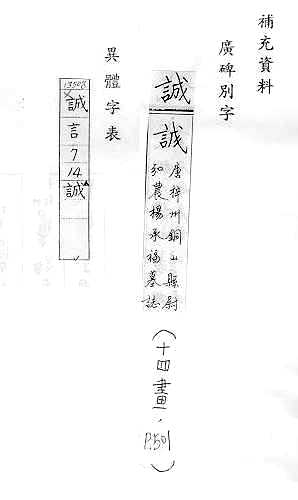 補充資料
廣碑別字
誠
誠
唐梓州銅山縣尉
弘農楊承福墓誌
(十四畫,P.501)
異體字表
13508
誠
言
7
14
誠